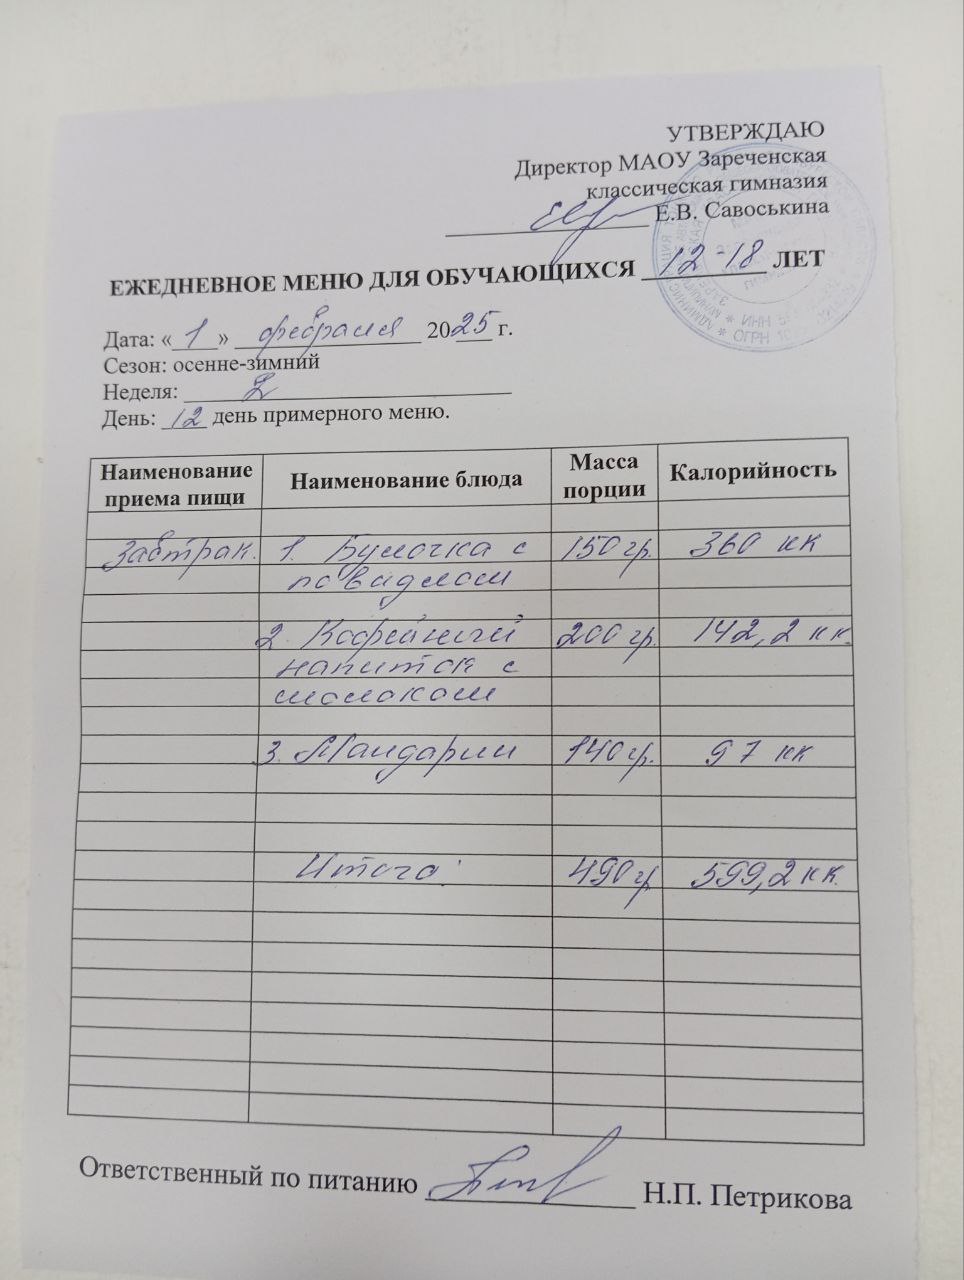 УТВЕРЖДАЮ
Директор МАОУ Зареченская
классическая гимназия
Е.В. Савоськина
ЕЖЕДНЕВНОЕ МЕНЮ ДЛЯ ОБУЧАЮЩИХСЯ 12-18 ЛЕТ
Дата: «1» февраля 2025 г.
Сезон: осенне-зимний
Неделя: 2
День: 12 день примерного меню.
Наименование приема пищи Наименование блюда Масса порции Калорийность
Завтрак. 1. Булочка с 150 гр. 360 кк
повидлом
2. Кофейный 200 гр. 142,2 кк.
напиток с
молоком
3. Мандарин 140 гр. 97 кк
Итого: 490 гр 599,2 кк.
Ответственный по питанию Н.П. Петрикова